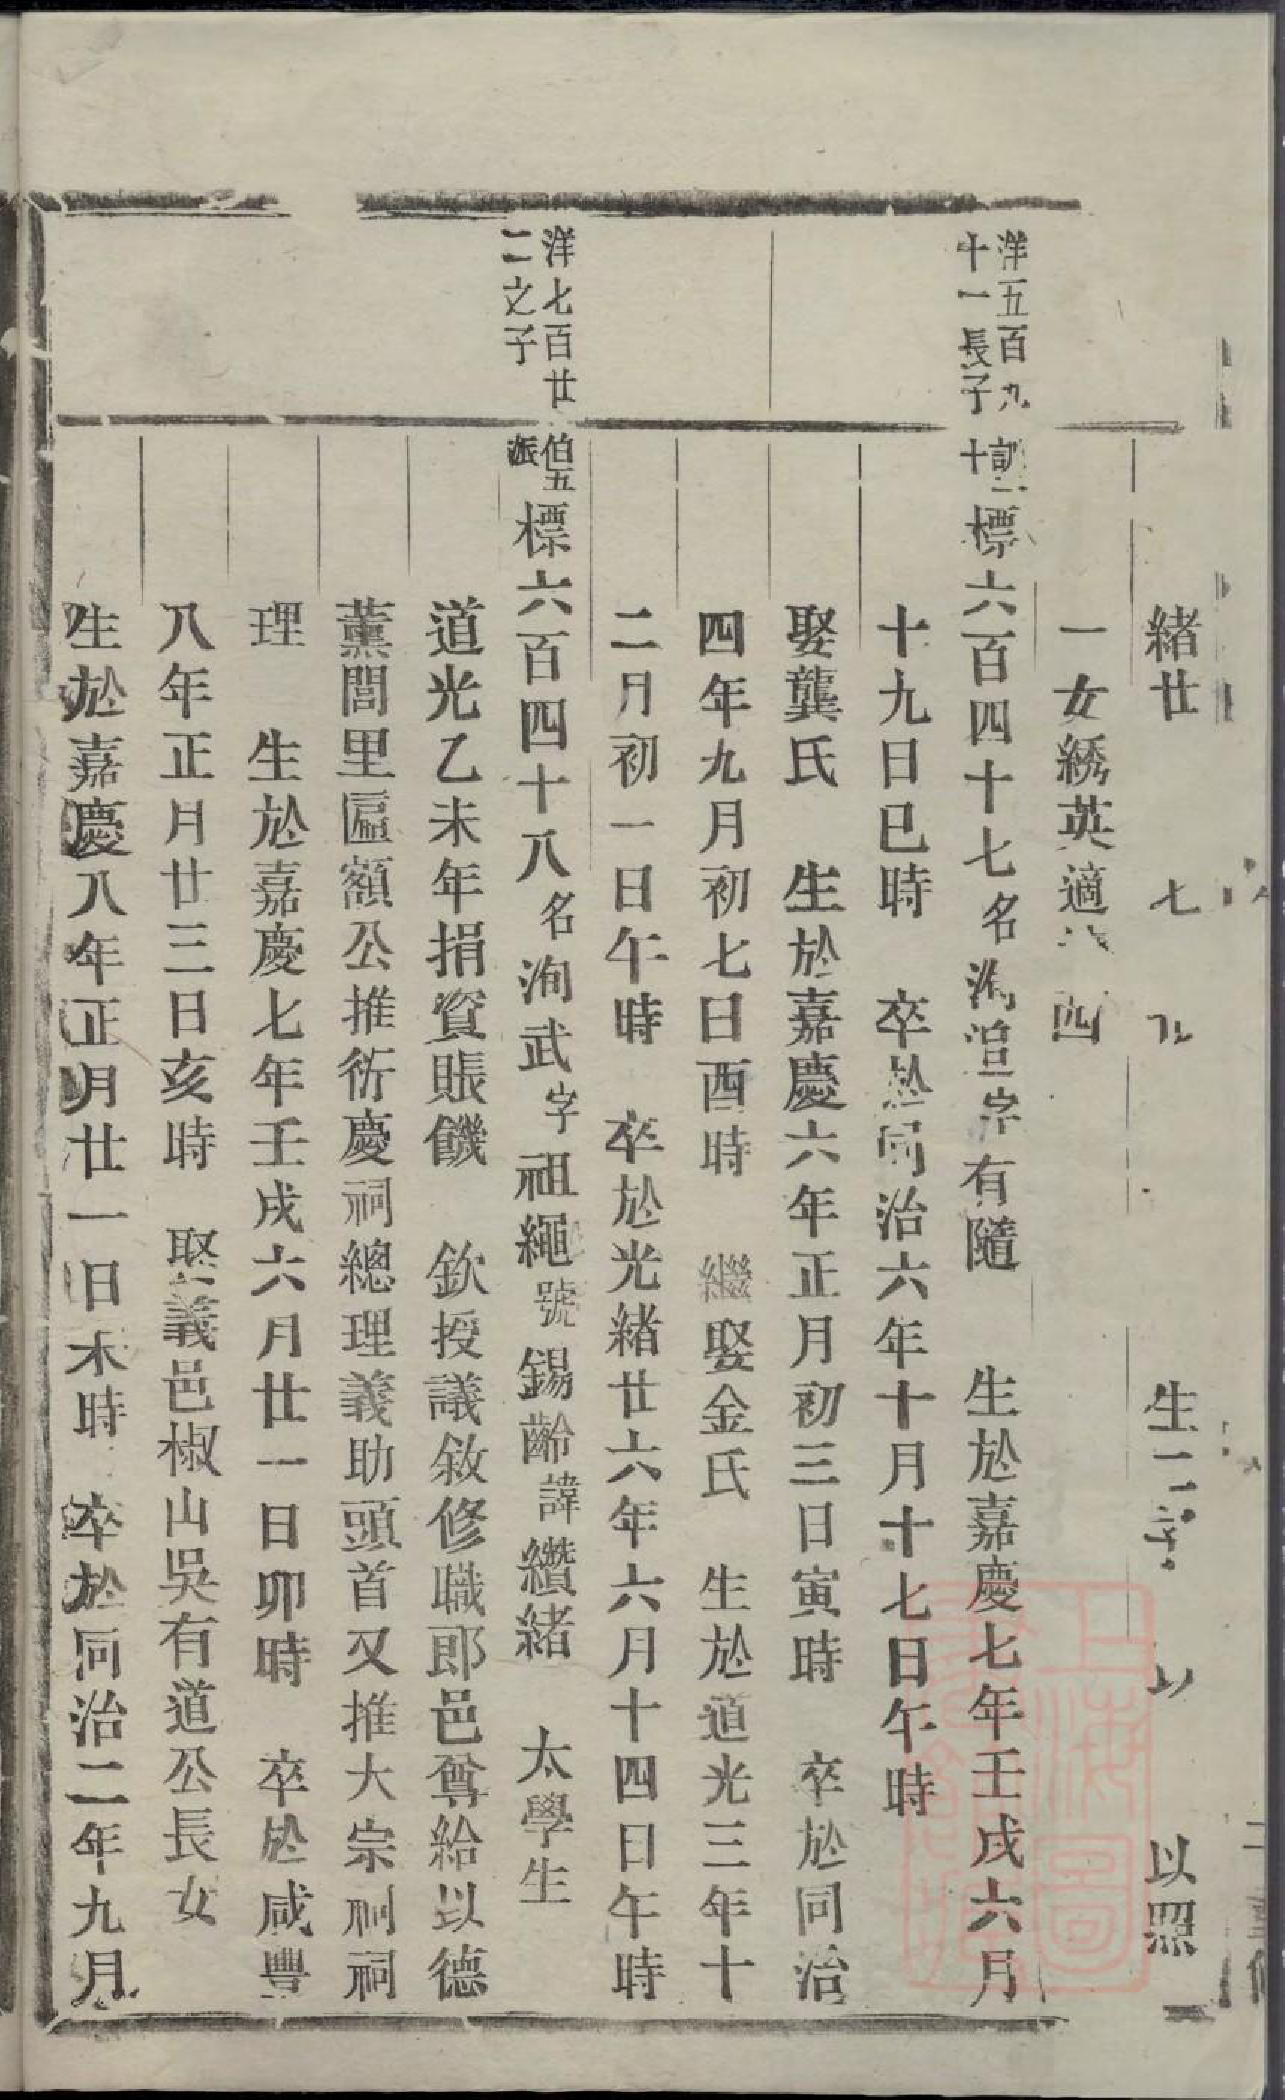 緒廿 七 生二子 以照
一女綉英適 四
洋五百九
十一長子
標六百四十七名 字有隨 生於嘉慶七年壬戌六月
十九日巳時 卒於同治六年十月十七日午時
娶龔氏 生於嘉慶六年正月初三日寅時 卒於同治
四年九月初七日酉時 繼娶金氏 生於道光三年十
二月初一日午時 卒於光緒廿六年六月十四日午時
洋七百廿
二之子
伯五
派
標六百四十八名洵武字祖繩號錫齡諱纘緒 太學生
道光乙未年捐資賬饑 欽授議敘修職郎邑尊給以德
薰閭里匾額公推衍慶祠總理義助頭首又推大宗祠祠
理 生於嘉慶七年壬戌六月廿一日卯時 卒於咸豐
八年正月廿三日亥時 娶義邑椒山吳有道公長女
生於嘉慶八年正月廿一日木時 卒於同治二年九月